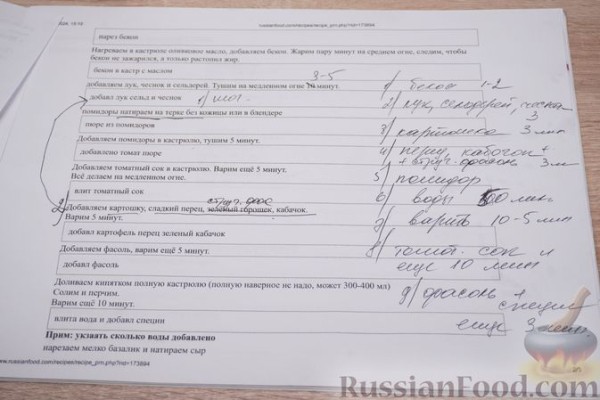 russianfood.com/recipes/recipe_prn.php?rid=173894
нарез бекон
Нагреваем в кастрюле оливковое масло, добавляем бекон. Жарим пару минут на среднем огне, следим, чтобы
бекон не зажарился, а только растопил жир.
бекон в кастр с маслом
3-5
добавляем лук, чеснок и сельдерей. Тушим на медленном огне 20 минут.
добавл лук сельд и чеснок
помидоры натираем на терке без кожицы или в блендере
пюре из помидоров
Добавляем помидоры в кастрюлю, тушим 5 минут.
добавлено томат пюре
Добавляем томатный сок в кастрюлю. Варим ещё 5 минут.
Всё делаем на медленном огне.
влит томатный сок
Добавляем картошку, сладкий перец, зелёный горошек, кабачок.
Варим 5 минут.
добавл картофель перец зеленый кабачок
Добавляем фасоль, варим ещё 5 минут.
добавл фасоль
Доливаем кипятком полную кастрюлю (полную наверное не надо, может 300-400 мл)
Солим и перчим.
Варим ещё 10 минут.
влита вода и добавл специи
Прим: укзвать сколько воды добавлено
нарезаем мелко базалик и натираем сыр
www.russianfood.com/recipes/recipe_prn.php?rid=173894
1) бекон 1-2
2) лук, сельдерей, чеснок
3
3) картошка 3 мин
4) перец, кабачок +
+ струч. фасоль 3 м
5) помидор
6) воды 500 мл
7) варить 10-5 мин
8) томат. сок и
еще 10 мин
9) фасоль +
специи
еще 3 мин.
RussianFood.com